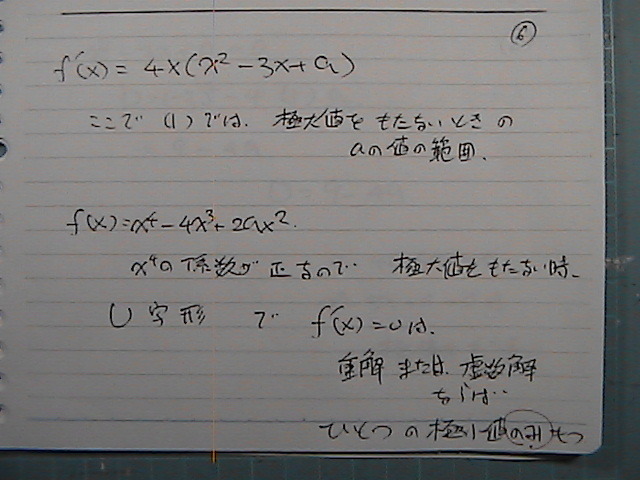 ⑥
f'(x) = 4x(x² - 3x + a)
ここで (1) では、極大値を もたないときの
aの値の範囲、
f(x) = x⁴ - 4x³ + 2ax².
x⁴の係数が正なので 極大値をもたない時、
U字形 で f'(x) = 0は、
重解 または 虚数解
ならば‥
ひとつの極小値のみもつ